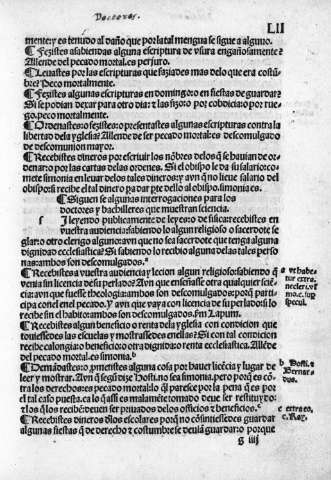 Doctores.
LII
mente: y es tenudo al daño que por la tal mengua se sigue a alguno.
¶ Fezistes asabiendas alguna escriptura de vsura engañosamente?
Allende del pecado mortal es perjuro.
¶ Leuastes por las escripturas que faziades mas delo que era costũ
bre? Peco mortalmente.
¶ Fezistes algunas escripturas en domingo: o en fiestas de guardar?
Si se podian dexar para otro dia: t las fizo: o por cobdicia: o por rue-
go. peco mortalmente.
¶ Ordenastes: o fezistes: o presentastes algunas escripturas contra la
libertad dela yglesia? Allende de ser pecado mortal: es descomulgado
de descomunion mayor.
¶ Recebistes dineros por escriuir los nõbres delos q̃ se hauian de or-
denar: o por las cartas de las ordenes. Si el obispo le da su salario: co-
mete simonia en leuar delos tales dineros: y avn que no lieue salario del
obispo: si recibe el tal dinero pa dar pte dello al obispo. simonia es.
¶ Siguen se algunas interrogaciones para los
doctores y bachilleres que muestran sciencia.
S I leyendo publicamente de leyes: o de fisica: recebistes en
vuestra audiencia: sabiendo lo algun religioso o sacerdote se
glar: o otro clerigo alguno: avn que no sea sacerdote que tenga alguna
dignidad ecclesiastica? Si sabiendo lo recibio alguna delas tales perso
nas: ambos son descomulgados.ª
¶ Recebistes a vuestra audiencia y lecion algun religioso: sabiendo q̃
venia sin licencia de su perlado? Avn que enseñasse otra qualquier sciẽ
cia: avn que fuesse theologia: ambos son descomulgados: porq̃ parti-
cipa conel enel pecado. Y avn que vaya con licencia de su perlado: si lo
recibe sin el habito: ambos son descomulgados. scđm Lapum.
¶ Recebistes algun beneficio o renta dela yglesia con condicion que
touiessedes las escuelas y mostrassedes enellas? Si con tal condicion
recibe calongia: o beneficio: o otra dignidad: o renta ecclesiastica. Allẽde
del pecado mortal. es simonia.ᵇ
¶ Demãdastes: o, prometistes alguna cosa por hauer licẽcia y lugar de
leer y mostrar. Avn q̃ segũ dize Hosti. no sea simonia. pero porq̃ es cõ-
tra los derechos: es pecado mortal: lo ql̃ paresce por la pena q̃ es por
el tal caso puesta. ca lo q̃ assi es malamẽte tomado deue ser restituydo:
t los q̃ los recibẽ: deuen ser priuados delos officios t beneficios.ᶜ
¶ Recebistes dineros dlos escolares porq̃ no cõsintiessedes guardar
algunas fiestas q̃ de derecho t costumbre se deuia guardar: o porque
g iiij
a vt habe-
tur extra.
ne cleri. vl
mo. c. sup
specul.
b Hosti. t
Bernar-
dus.
c extra eo.
c. Ray.